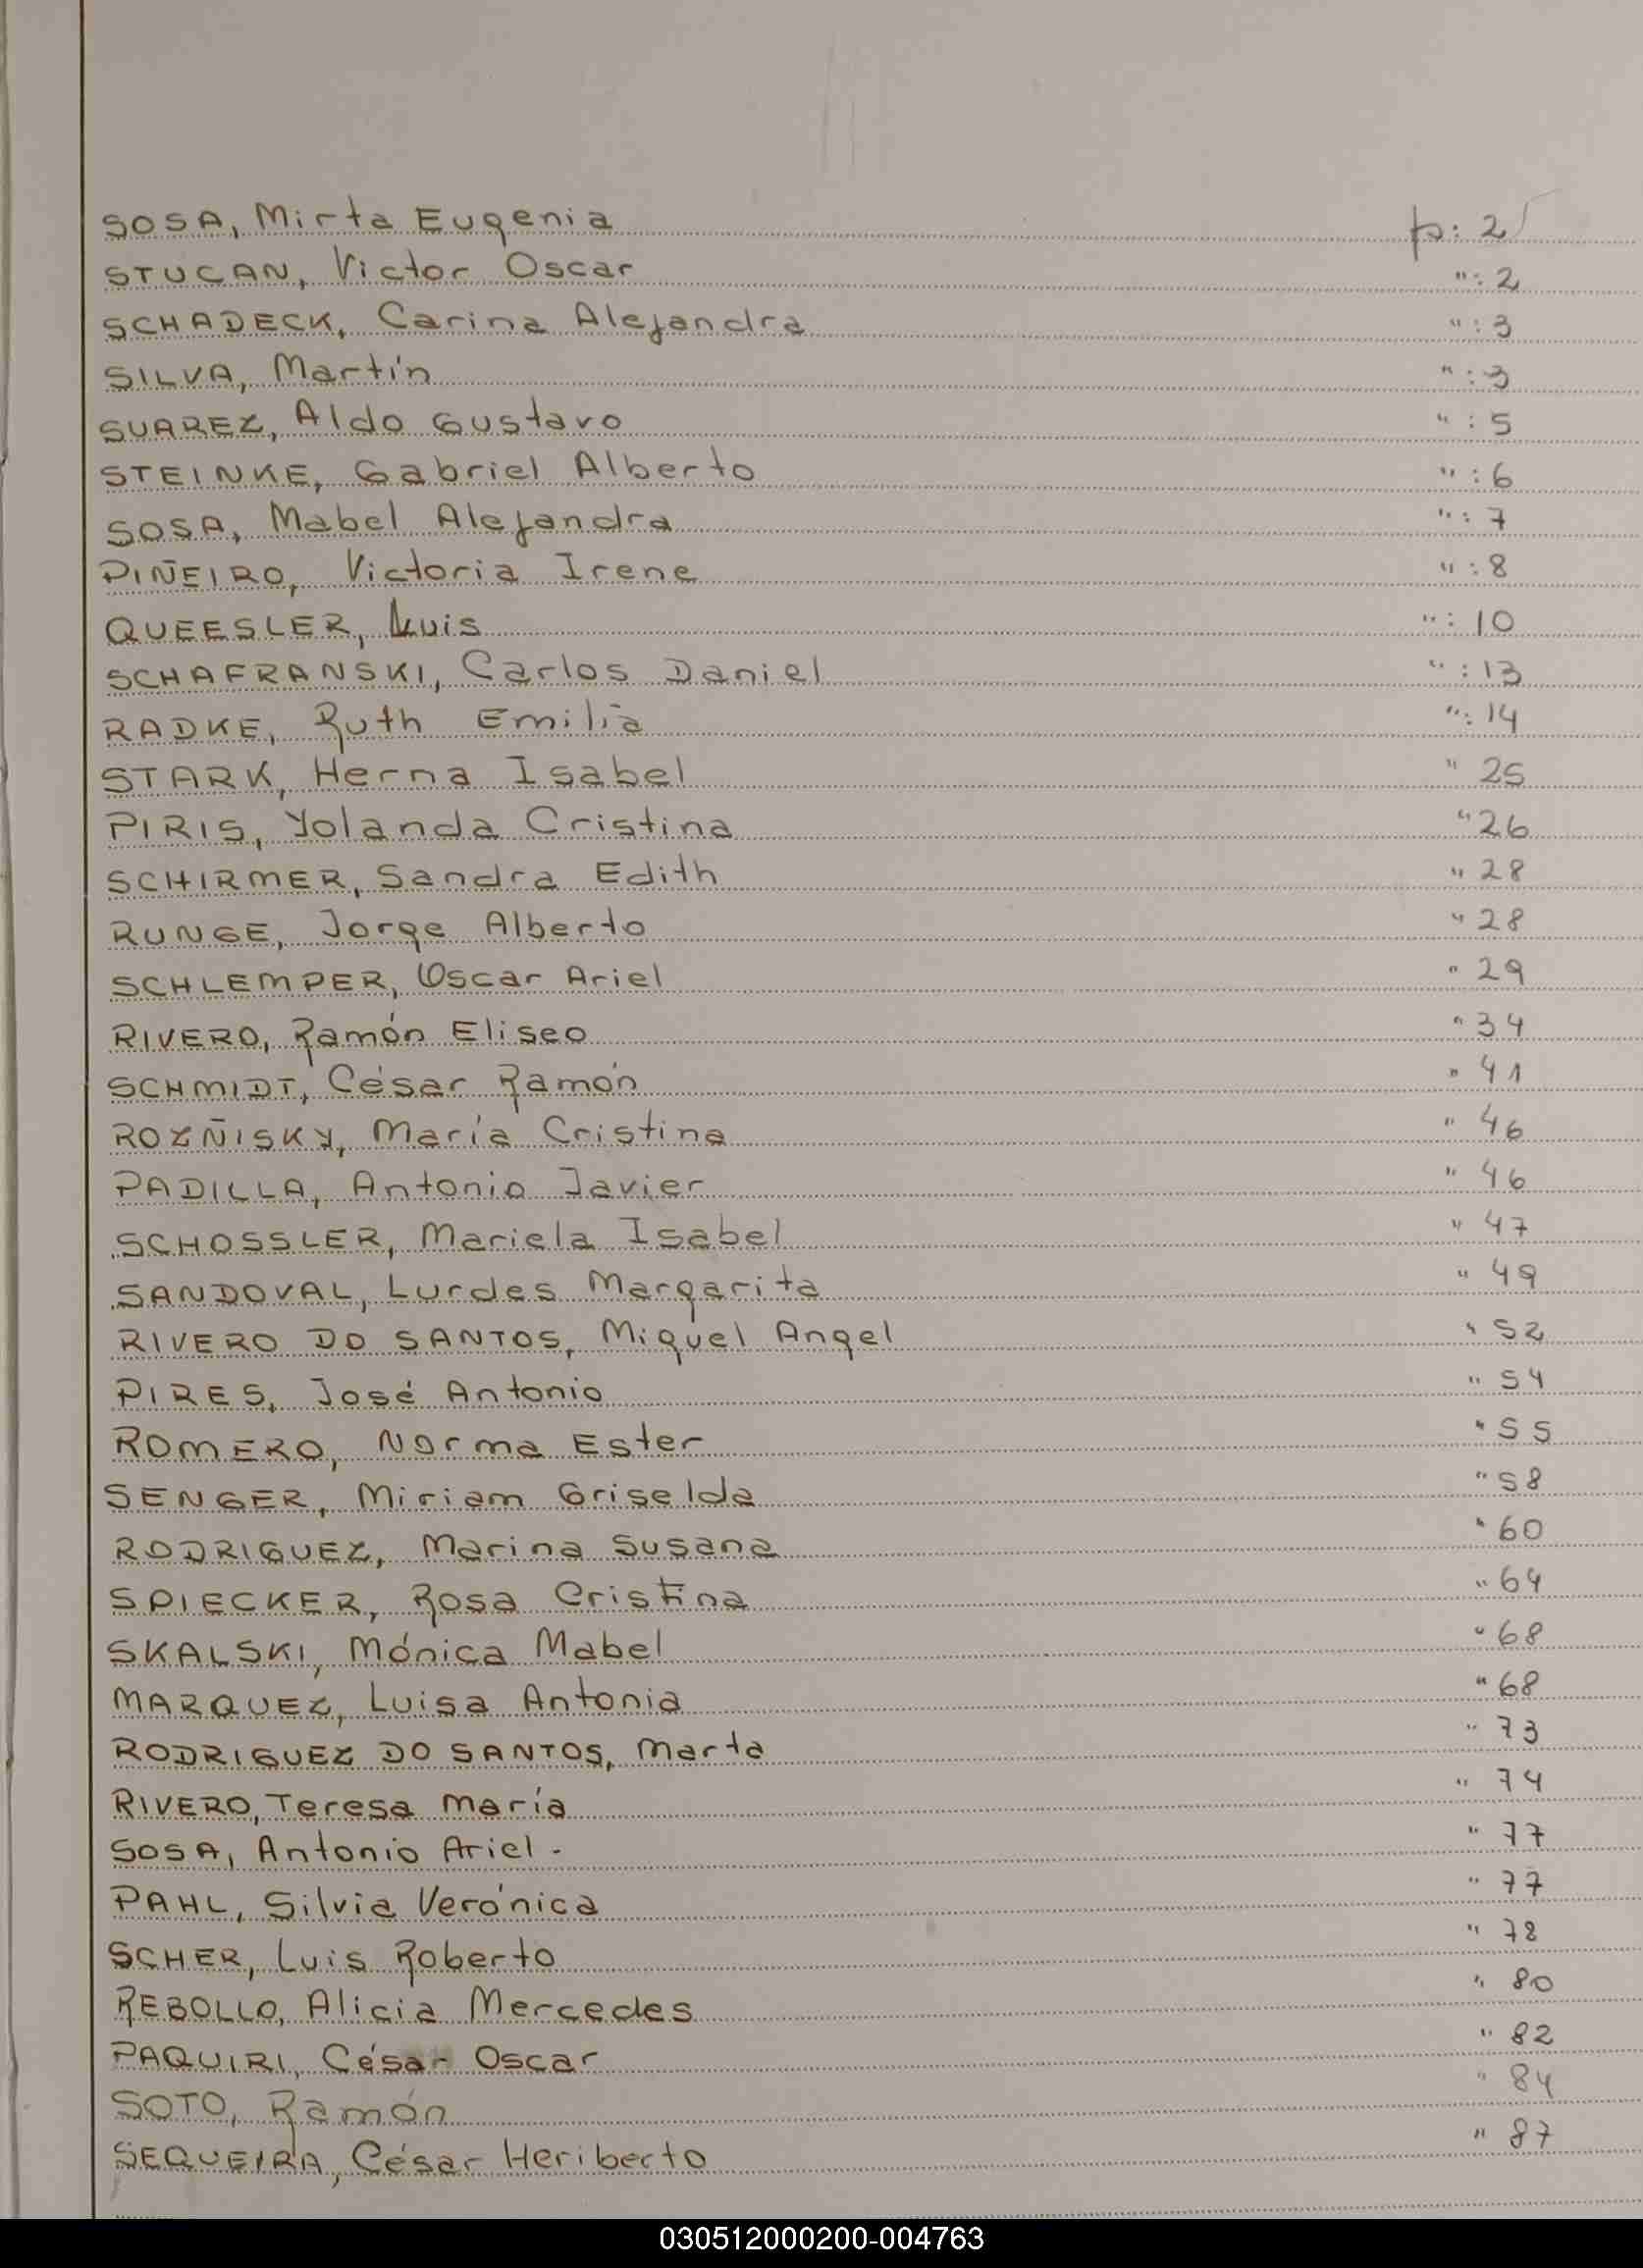 SOSA, Mirta Eugenia p: 2
STUCAN, Victor Oscar ": 2
SCHADECK, Carina Alejandra ": 3
SILVA, Martín ": 3
SUAREZ, Aldo Gustavo ": 5
STEINKE, Gabriel Alberto ": 6
SOSA, Mabel Alejandra ": 7
PIÑEIRO, Victoria Irene ": 8
QUEESLER, Luis ": 10
SCHAFRANSKI, Carlos Daniel ": 13
RADKE, Ruth Emilia ": 14
STARK, Herna Isabel " 25
PIRIS, Yolanda Cristina " 26
SCHIRMER, Sandra Edith " 28
RUNGE, Jorge Alberto " 28
SCHLEMPER, Oscar Ariel " 29
RIVERO, Ramón Eliseo " 34
SCHMIDT, César Ramón " 41
ROZÑISKY, María Cristina " 46
PADILLA, Antonio Javier " 46
SCHOSSLER, Mariela Isabel " 47
SANDOVAL, Lurdes Margarita " 49
RIVERO DO SANTOS, Miguel Angel " 52
PIRES, José Antonio " 54
ROMERO, Norma Ester " 55
SENGER, Miriam Griselda " 58
RODRIGUEZ, Marina Susana " 60
SPIECKER, Rosa Cristina " 64
SKALSKI, Mónica Mabel " 68
MARQUEZ, Luisa Antonia " 68
RODRIGUEZ DO SANTOS, Marta " 73
RIVERO, Teresa María " 74
SOSA, Antonio Ariel - " 77
PAHL, Silvia Verónica " 77
SCHER, Luis Roberto " 78
REBOLLO, Alicia Mercedes " 80
PAQUIRI, César Oscar " 82
SOTO, Ramón " 84
SEQUEIRA, César Heriberto " 87
030512000200-004763